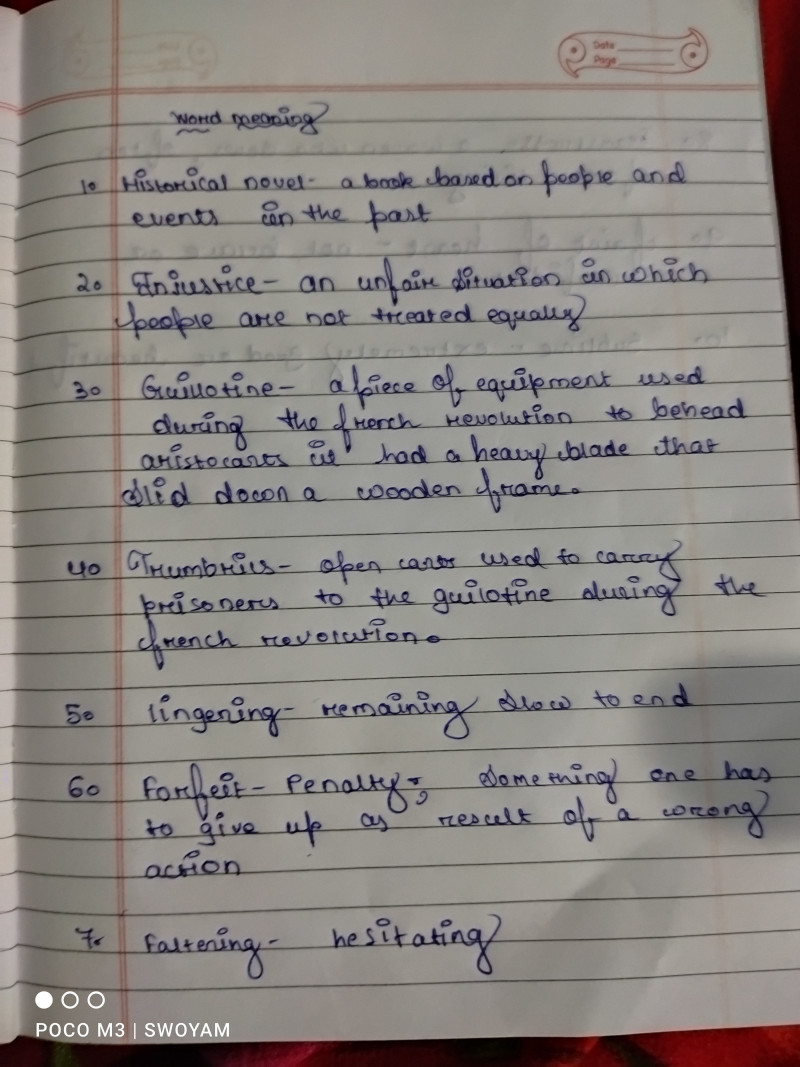 Date
Page
Word meaning
1. Historical novel- a book based on people and
events in the past
2. Injustice- an unfair situation in which
people are not treated equally
3. Guillotine- a piece of equipment used
during the french revolution to behead
aristocarts it had a heavy blade that
slid down a wooden frame.
4. Trumbrils- open carts used to carry
prisoners to the guilotine during the
french revolution.
5. lingering- remaining slow to end
6. Forfeit- Penalty-; something one has
to give up as result of a wrong
action
7. Faltering- hesitating
POCO M3 | SWOYAM